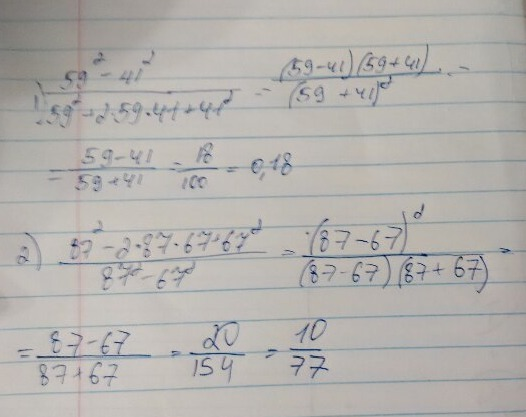 1) (59² - 41²)/(59² + 2·59·41 + 41²) = ((59-41)(59+41))/((59+41)²) =
= (59-41)/(59+41) = 18/100 = 0,18
2) (87² - 2·87·67 + 67²)/(87² - 67²) = ((87-67)²)/((87-67)(87+67)) =
= (87-67)/(87+67) = 20/154 = 10/77